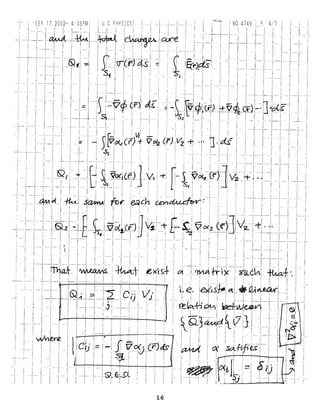 SEP. 17. 2002 4:50PM U. C. PHYSICS NO. 4749 P. 4/7
and the total charges are
Q₁ = ∫_{S₁} σ(r̄) ds = ∫_{S₁} E(r)ds̄
= ∫_{S₁} -∇̄φ(r̄) ds̄ = -∫_{S₁} [∇̄φ₁(r̄) + ∇̄φ₂(r̄) --]·ds̄
= -∫[∇̄α₁(r̄) V₁ + ∇̄α₂(r̄) V₂ + ... ]·ds̄
Q₁ = [-∫_{S₁} ∇̄α₁(r̄)] V₁ + [-∫_{S₁} ∇̄α₂(r̄)] V₂ + ...
and the same for each conductor:
Q₂ = [-∫_{S₂} ∇̄α₁(r̄)] V₁ + [-∫_{S₂} ∇̄α₂(r̄)] V₂ + ...
⋮
That means that exist a matrix such that:
Qᵢ = Σⱼ Cᵢⱼ Vⱼ
i.e. exists a linear
relation between
{Q} and {V}
where
Cᵢⱼ = -∫_{Sᵢ} ∇̄αⱼ(r̄)ds̄
and α satifies
αᵢ|_{Sⱼ} = δᵢⱼ
, and ∇²αᵢ = 0
Q.E.D.
16